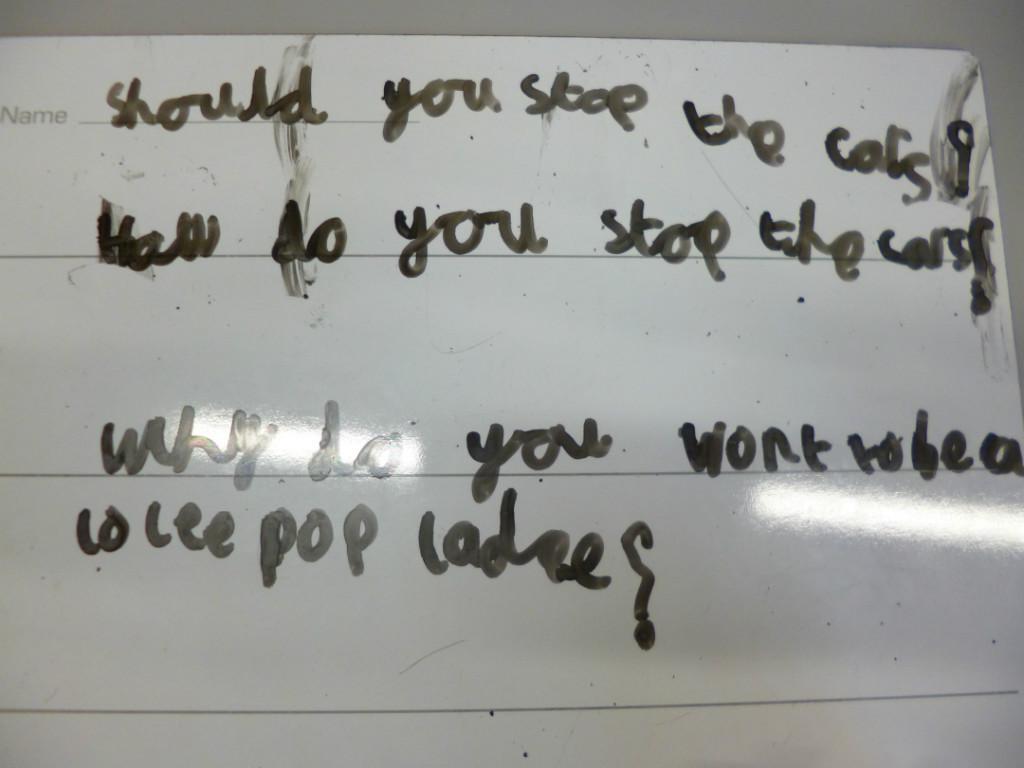 Name should you stop the cars?
How do you stop the cars?
why do you wont to be a
loleepop ladee?